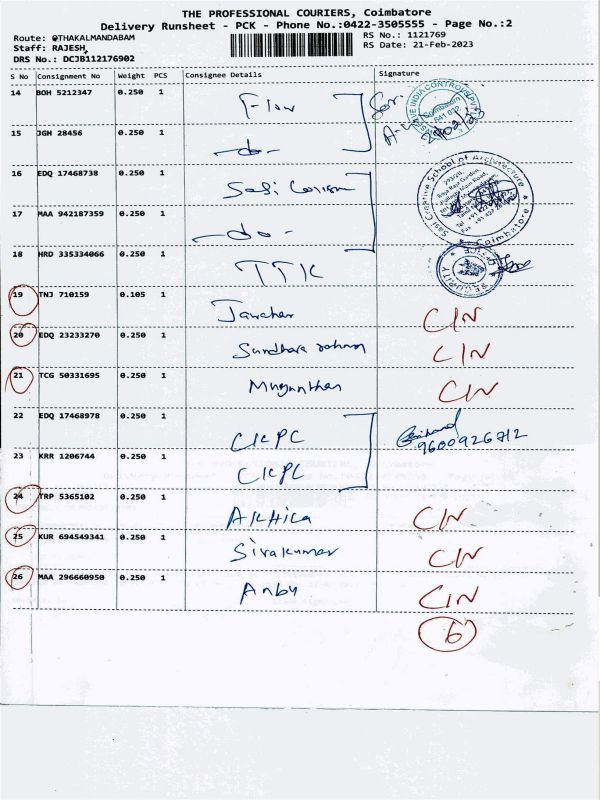 THE PROFESSIONAL COURIERS, Coimbatore
Delivery Runsheet - PCK - Phone No.:0422-3505555 - Page No.:2
Route: @THAKALMANDABAM
RS No.: 1121769
Staff: RAJESH
RS Date: 21-Feb-2023
DRS No.: DCJB112176902
S No Consignment No Weight PCS Consignee Details Signature
14 BOH 5212347 0.250 1 Flow
15 JGH 28456 0.250 1 -do-
16 EDQ 17468738 0.250 1 Sasi
17 MAA 942187359 0.250 1 -do-
Sasi Creative School of Architecture
Coimbatore
18 HRD 335334066 0.250 1 TTK
SECURITY
19 TNJ 710159 0.105 1 Jawahar CIN
20 EDQ 23233270 0.250 1 CIN
21 TCG 50331695 0.250 1 CIN
22 EDQ 17468978 0.250 1 CKPC 9600926712
23 KRR 1206744 0.250 1 CKPC
24 TRP 5365102 0.250 1 AKHILA CIN
25 KUR 694549341 0.250 1 Sivakumar CIN
26 MAA 296660950 0.250 1 Anbu CIN
6